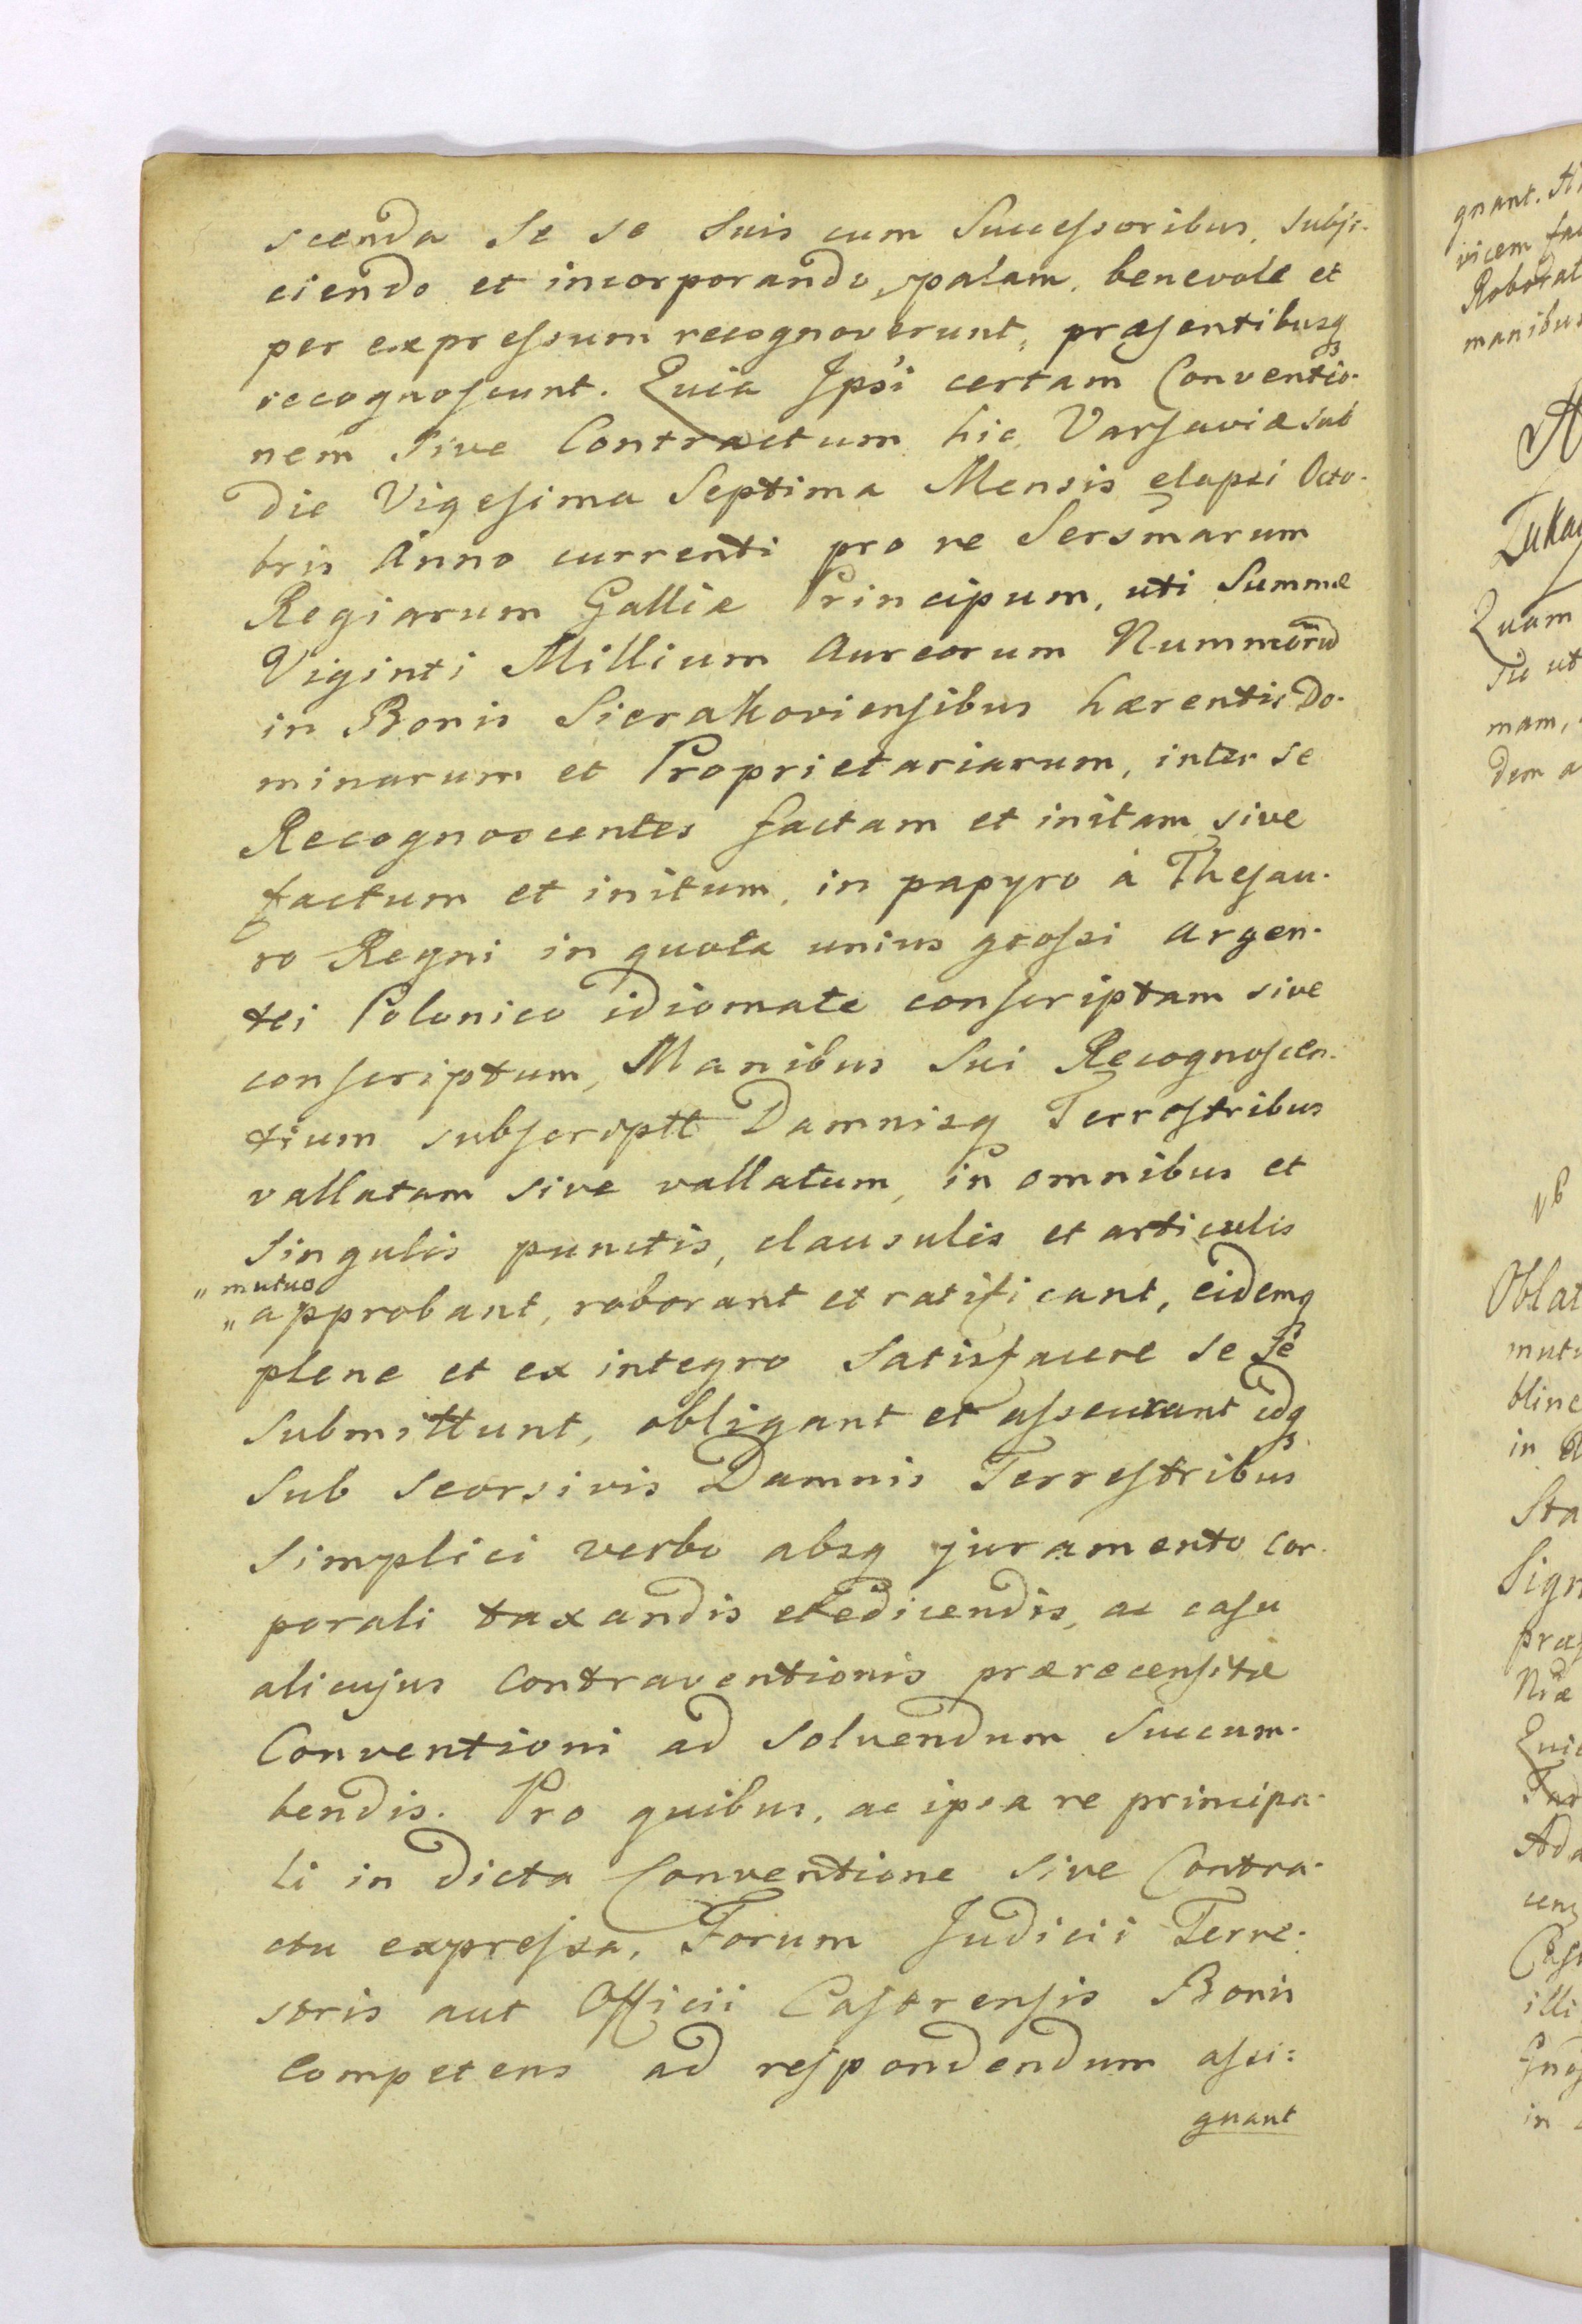 scenda Se se Suis cum Successoribus, Subji-
ciendo et incorporando, palam, benevole et
per expressum recognoverunt, præsentibusq3
recognoscunt. Quia Ipsi certam Conventio-
nem Sive Contractum hic Varsaviæ Sub
die Vigesima Septima Mensis elapsi Octo-
bris Anno currenti pro re Sersmarum
Regiarum Galliæ Principum, uti Summæ
Viginti Millium Aureorum Nummorū
in Bonis Sierakoviensibus hærentis Do-
minarum et Proprietariarum, inter se
Recognoscentes factam et initam sive
factum et initum, in papyro à Thesau-
ro Regni in quota unius grossi argen-
tei Polonico idiomate conscriptam sive
conscriptum, Manibus Sui Recognoscen-
tium subscriptt Damnisq Terrestribus
vallatam sive vallatum, in omnibus et
Singulis punctis, clausulis et articulis
" mutuo
" approbant, roborant et ratificant, eidemq3
plene et ex integro Satisfacere Se Se
Submittunt, obligant et assecurant idq3
Sub Seorsivis Damnis Terrestribus
Simplici verbo absq juramento cor-
porali taxandis et edicendis, ac casu
alicujus Contraventionis prærecensitæ
Conventioni ad Solvendum Succum-
bendis. Pro quibus, ac ipsa re principa-
li in dicta Conventione Sive Contra-
ctu expressa, Forum Judicii Terre-
stris aut Officii Castrensis Bonis
Competens ad respondendum assi:
gnant
gnant.
vicem
manibus
Quam
ut
mam,
dem a
Oblat
in